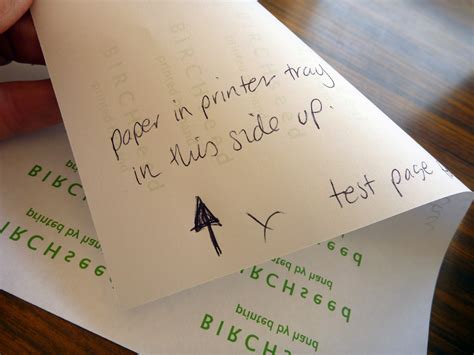 BIRCHseed
printed by hand
paper in printer tray
in this side up.
x test page
BIRCHseed
printed by hand
BIRCHseed
printed by hand
BIRCHseed
printed by hand
BIRCHseed
printed by hand
BIRCHseed